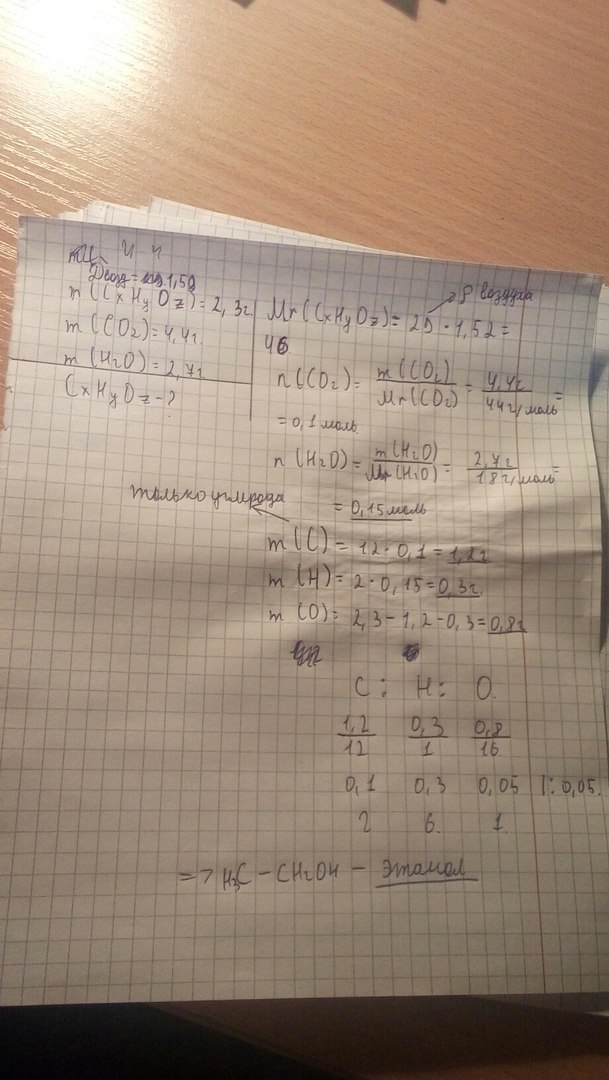 Dвозд = 1,59
m(CxHyOz) = 2,3г
m(CO2) = 4,4г
m(H2O) = 2,7г
CxHyOz - ?
ρ воздуха
Mr(CxHyOz) = 29 · 1,52 =
46
n(CO2) = m(CO2) / Mr(CO2) = 4,4г / 44г/моль =
= 0,1 моль
n(H2O) = m(H2O) / Mr(H2O) = 2,7г / 18г/моль =
= 0,15 моль
только углерода
m(C) = 12 · 0,1 = 1,2г
m(H) = 2 · 0,15 = 0,3г.
m(O) = 2,3 - 1,2 - 0,3 = 0,8г
C : H : O
1,2/12 0,3/1 0,8/16
0,1 0,3 0,05 |: 0,05.
2 6 1
=> H3C - CH2OH - этанол